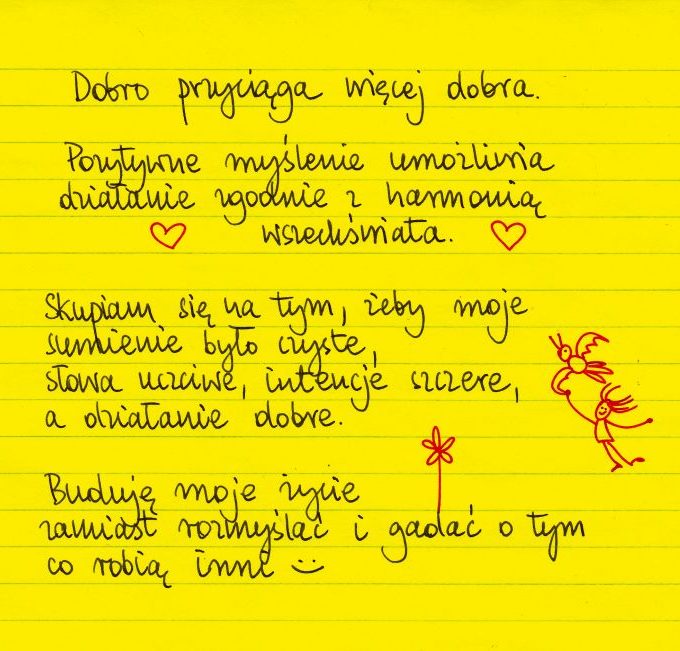 Dobro przyciąga więcej dobra.
Pozytywne myślenie umożliwia
działanie zgodnie z harmonią
wszechświata.
Skupiam się na tym, żeby moje
sumienie było czyste,
słowa uczciwe, intencje szczere,
a działanie dobre.
Buduję moje życie
zamiast rozmyślać i gadać o tym
co robią inni :)